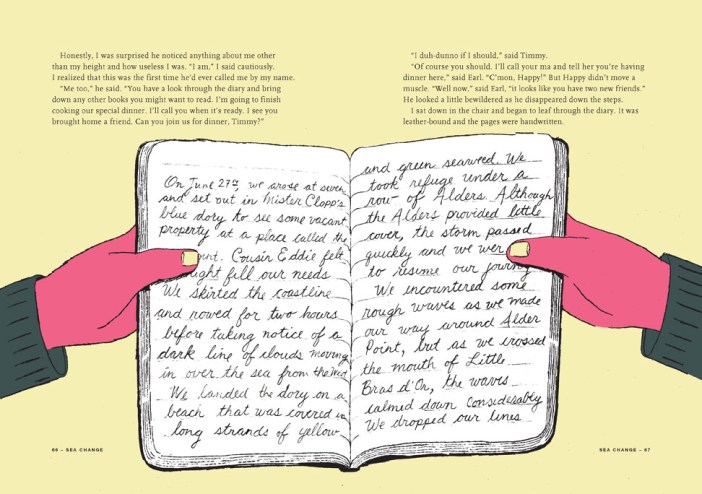 Honestly, I was surprised he noticed anything about me other
than my height and how useless I was. “I am,” I said cautiously.
I realized that this was the first time he’d ever called me by my name.
“Me too,” he said. “You have a look through the diary and bring
down any other books you might want to read. I’m going to finish
cooking our special dinner. I’ll call you when it’s ready. I see you
brought home a friend. Can you join us for dinner, Timmy?”
“I duh-dunno if I should,” said Timmy.
“Of course you should. I’ll call your ma and tell her you’re having
dinner here,” said Earl. “C’mon, Happy!” But Happy didn’t move a
muscle. “Well now,” said Earl, “it looks like you have two new friends.”
He looked a little bewildered as he disappeared down the steps.
I sat down in the chair and began to leaf through the diary. It was
leather-bound and the pages were handwritten.
On June 27th, we arose at seven
and set out in Mister Clapp's
blue dory to see some vacant
property at a place called the
Cousin Eddie felt
fell our needs
We skirted the coastline
and rowed for two hours
before taking notice of a
dark line of clouds moving
in over the sea from the
We landed the dory on a
beach that was covered in
long strands of yellow
and green seaweed. We
took refuge under a
row of Alders. Although
the Alders provided little
cover, the storm passed
quickly and we
to resume our
We encountered some
rough waves as we made
our way around Alder
Point, but as we crossed
the mouth of Little
Bras d'Or, the waves
calmed down considerably
We dropped our lines
66 – SEA CHANGE
SEA CHANGE – 67